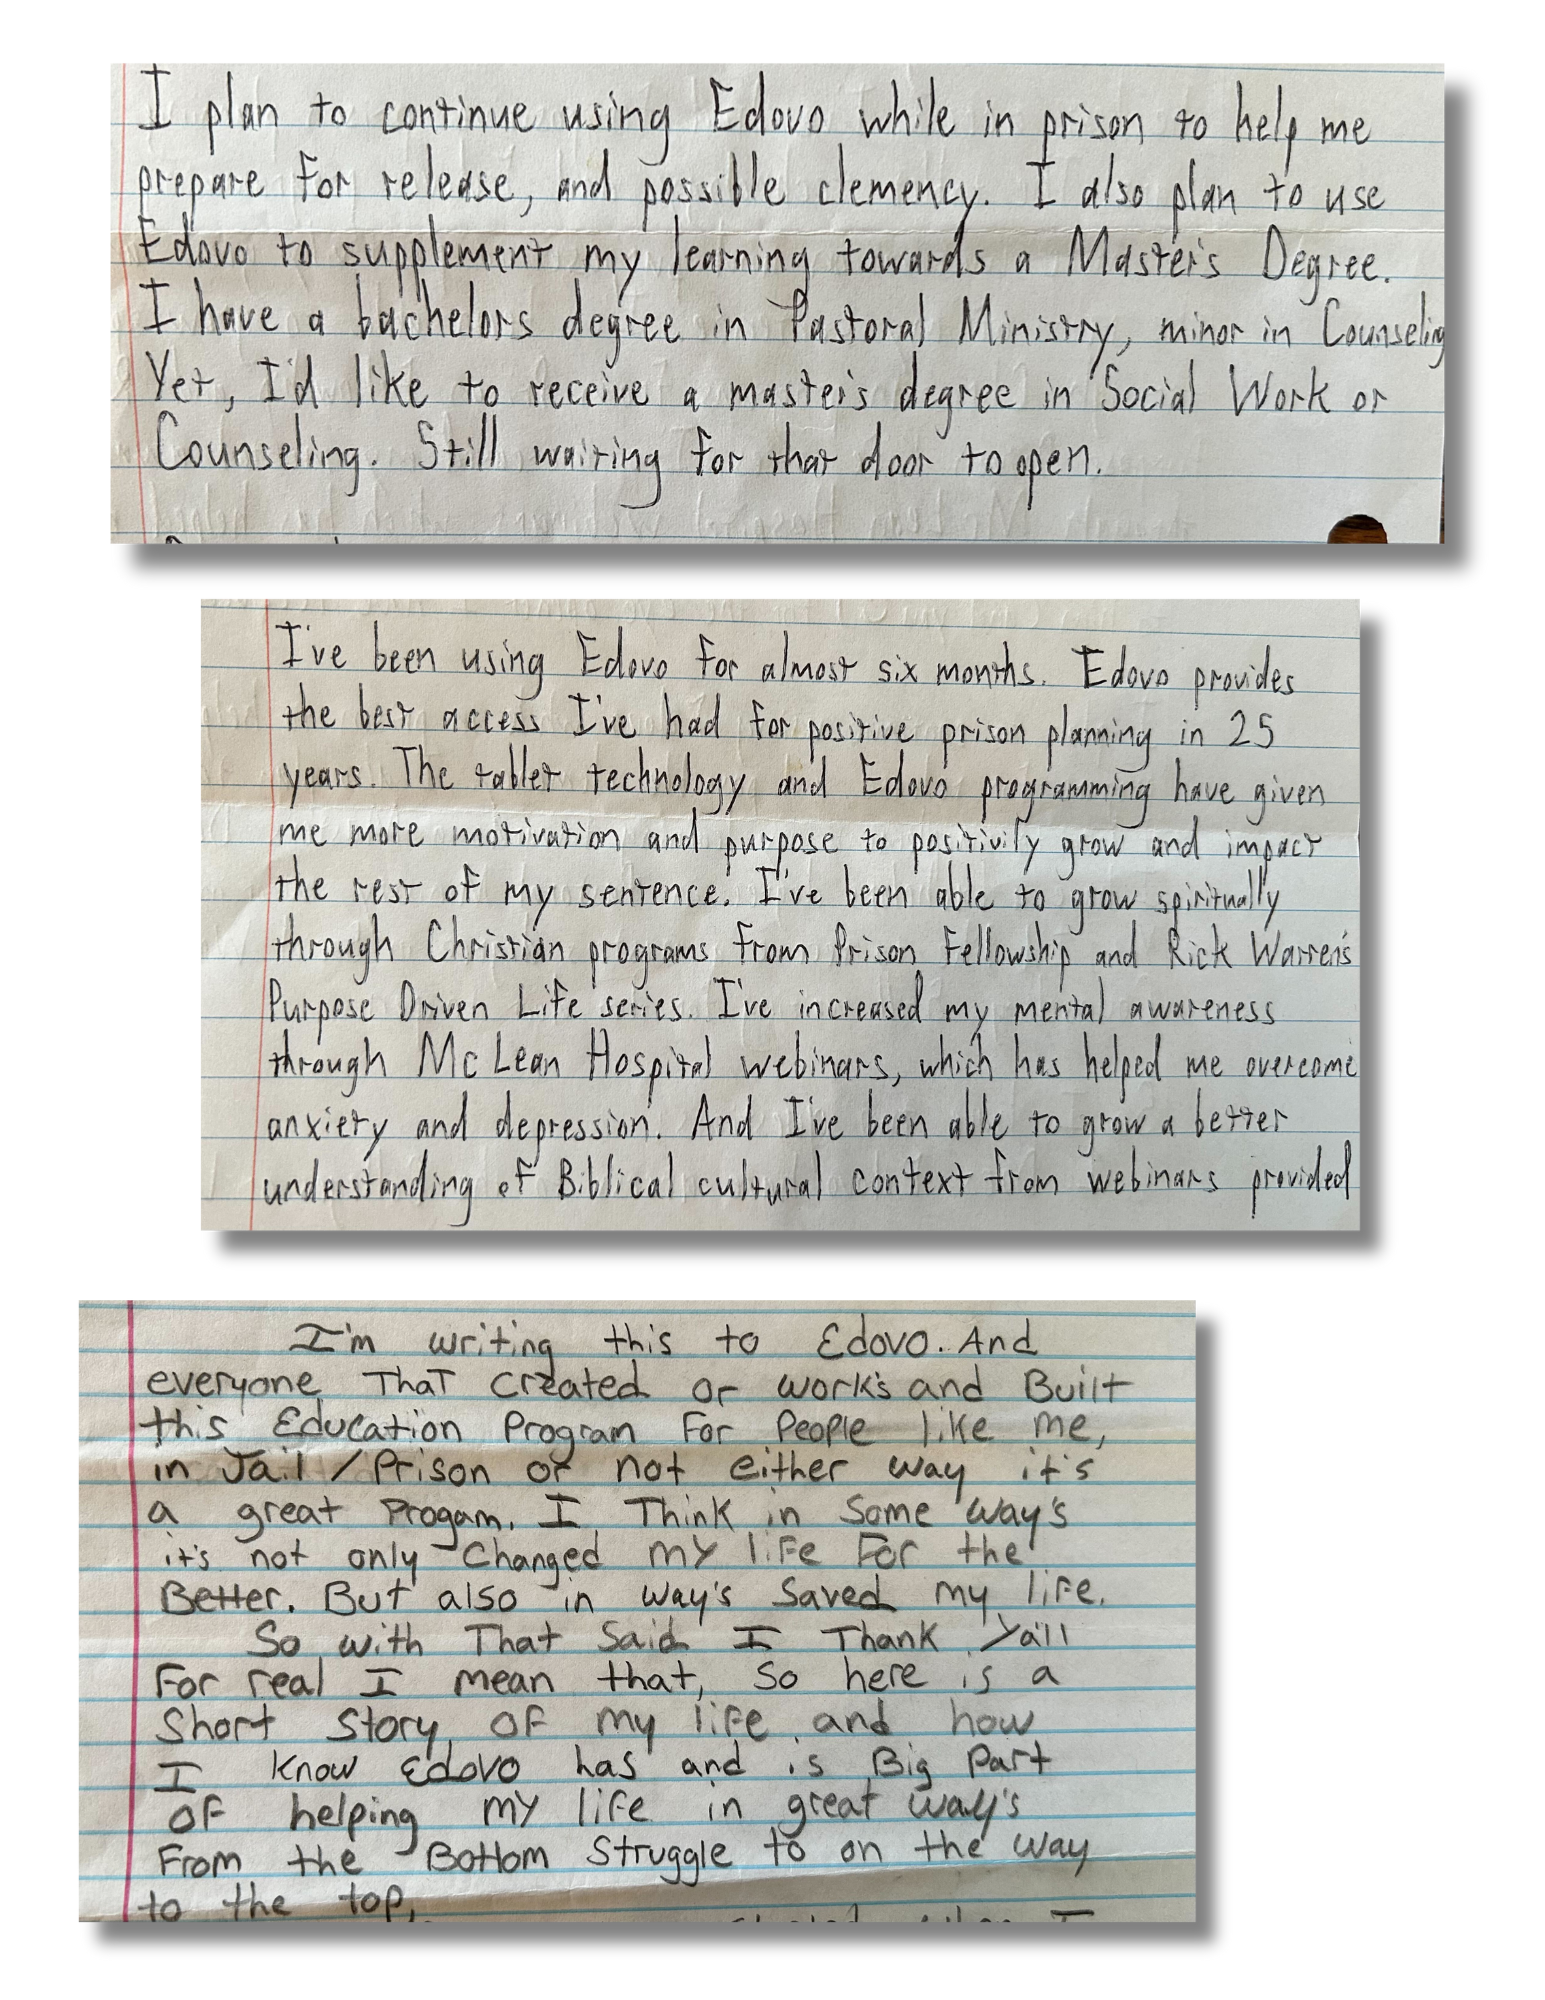 I plan to continue using Edovo while in prison to help me
prepare for release, and possible clemency. I also plan to use
Edovo to supplement my learning towards a Master's Degree.
I have a bachelors degree in Pastoral Ministry, minor in Counseling
Yet, I'd like to receive a master's degree in Social Work or
Counseling. Still waiting for that door to open.
I've been using Edovo for almost six months. Edovo provides
the best access I've had for positive prison planning in 25
years. The tablet technology and Edovo programming have given
me more motivation and purpose to positivily grow and impact
the rest of my sentence. I've been able to grow spiritually
through Christian programs from Prison Fellowship and Rick Warren's
Purpose Driven Life series. I've increased my mental awareness
through McLean Hospital webinars, which has helped me overcome
anxiety and depression. And I've been able to grow a better
understanding of Biblical cultural context from webinars provided
I'm writing this to Edovo. And
everyone That created or work's and Built
this Education Program For People like me,
in Jail/Prison or not either way it's
a great Progam. I Think in Some way's
it's not only Changed my life For the
Better. But also in way's Saved my life.
So with That Said I Thank Ya'll
For real I mean that, So here is a
Short Story OF my life and how
I know Edovo has and is Big Part
OF helping my life in great way's
From the Bottom Struggle to on the way
to the top.